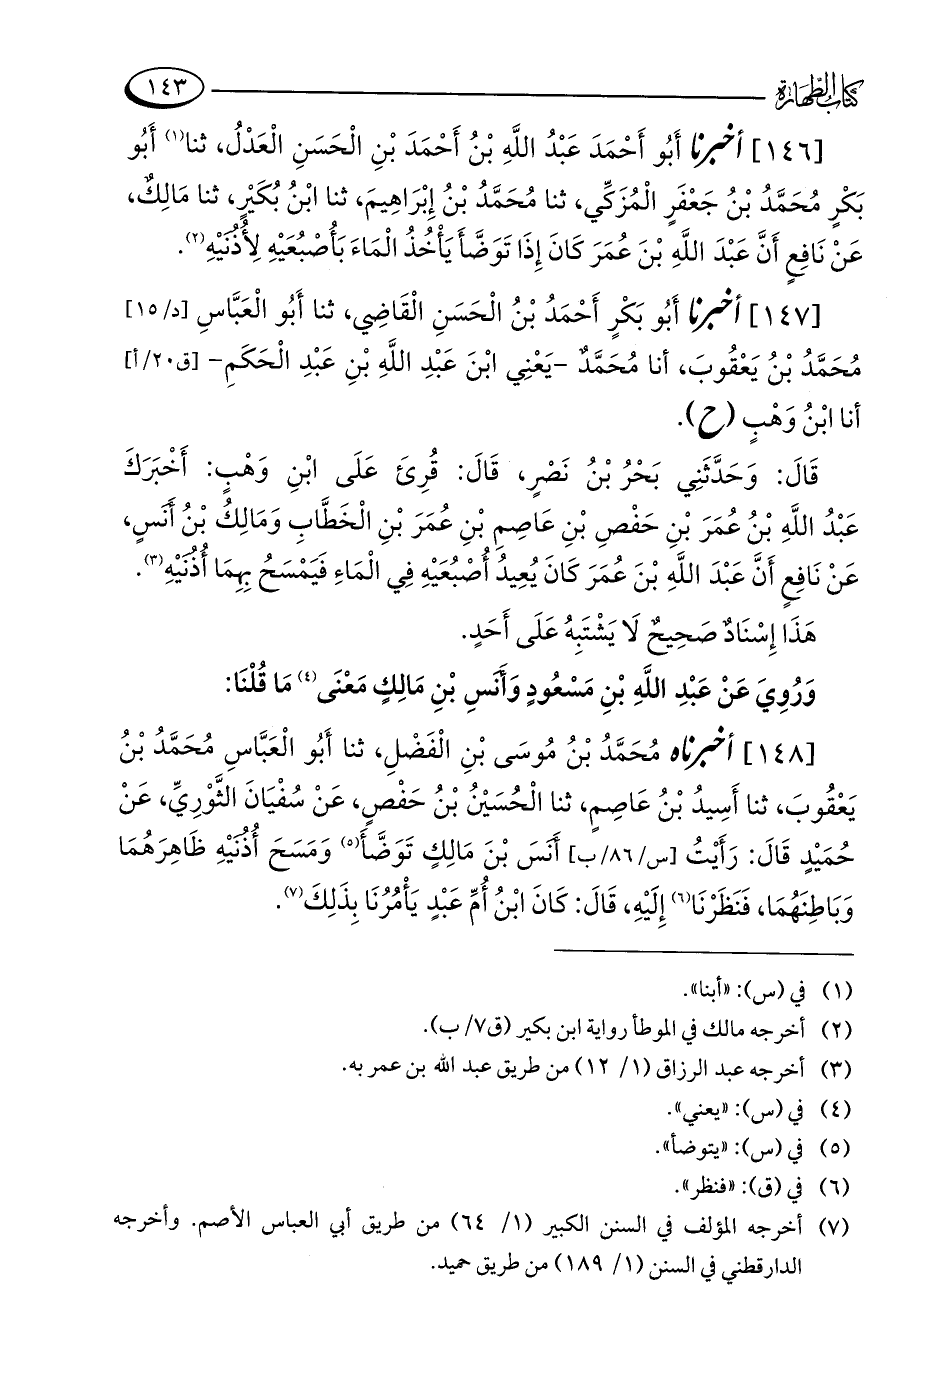 كتاب الطهارة ١٤٣
[١٤٦] أخبرنا أَبُو أَحْمَدَ عَبْدُ اللَّهِ بْنُ أَحْمَدَ بْنِ الْحَسَنِ الْعَدْلُ، ثنا(١) أَبُو
بَكْرٍ مُحَمَّدُ بْنُ جَعْفَرٍ الْمُزَكِّي، ثنا مُحَمَّدُ بْنُ إِبْرَاهِيمَ، ثنا ابْنُ بُكَيْرٍ، ثنا مَالِكٌ،
عَنْ نَافِعٍ أَنَّ عَبْدَ اللَّهِ بْنَ عُمَرَ كَانَ إِذَا تَوَضَّأَ يَأْخُذُ الْمَاءَ بَأَصْبُعَيْهِ لِأُذُنَيْهِ(٢).
[١٤٧] أخبرنا أَبُو بَكْرٍ أَحْمَدُ بْنُ الْحَسَنِ الْقَاضِي، ثنا أَبُو الْعَبَّاسِ [د/١٥]
مُحَمَّدُ بْنُ يَعْقُوبَ، أنا مُحَمَّدٌ -يَعْنِي ابْنَ عَبْدِ اللَّهِ بْنِ عَبْدِ الْحَكَمِ- [ق٢٠/أ]
أنا ابْنُ وَهْبٍ (ح).
قَالَ: وَحَدَّثَنِي بَحْرُ بْنُ نَصْرٍ، قَالَ: قُرِئَ عَلَى ابْنِ وَهْبٍ: أَخْبَرَكَ
عَبْدُ اللَّهِ بْنُ عُمَرَ بْنِ حَفْصِ بْنِ عَاصِمِ بْنِ عُمَرَ بْنِ الْخَطَّابِ وَمَالِكُ بْنُ أَنَسٍ،
عَنْ نَافِعٍ أَنَّ عَبْدَ اللَّهِ بْنَ عُمَرَ كَانَ يُعِيدُ أُصْبُعَيْهِ فِي الْمَاءِ فَيَمْسَحُ بِهِمَا أُذُنَيْهِ(٣).
هَذَا إِسْنَادٌ صَحِيحٌ لَا يَشْتَبِهُ عَلَى أَحَدٍ.
وَرُوِيَ عَنْ عَبْدِ اللَّهِ بْنِ مَسْعُودٍ وَأَنَسِ بْنِ مَالِكٍ مَعْنَى(٤) مَا قُلْنَا:
[١٤٨] أخبرناه مُحَمَّدُ بْنُ مُوسَى بْنِ الْفَضْلِ، ثنا أَبُو الْعَبَّاسِ مُحَمَّدُ بْنُ
يَعْقُوبَ، ثنا أَسِيدُ بْنُ عَاصِمٍ، ثنا الْحُسَيْنُ بْنُ حَفْصٍ، عَنْ سُفْيَانَ الثَّوْرِيِّ، عَنْ
حُمَيْدٍ قَالَ: رَأَيْتُ [س/٨٦/ب] أَنَسَ بْنَ مَالِكٍ تَوَضَّأَ(٥) وَمَسَحَ أُذُنَيْهِ ظَاهِرَهُمَا
وَبَاطِنَهُمَا، فَنَظَرْنَا(٦) إِلَيْهِ، قَالَ: كَانَ ابْنُ أُمِّ عَبْدٍ يَأْمُرُنَا بِذَلِكَ(٧).
(١) في (س): «أبنا».
(٢) أخرجه مالك في الموطأ رواية ابن بكير (ق٧/ ب).
(٣) أخرجه عبد الرزاق (١/ ١٢) من طريق عبد الله بن عمر به.
(٤) في (س): «يعني».
(٥) في (س): «يتوضأ».
(٦) في (ق): «فنظر».
(٧) أخرجه المؤلف في السنن الكبير (١/ ٦٤) من طريق أبي العباس الأصم. وأخرجه
الدارقطني في السنن (١/ ١٨٩) من طريق حميد.